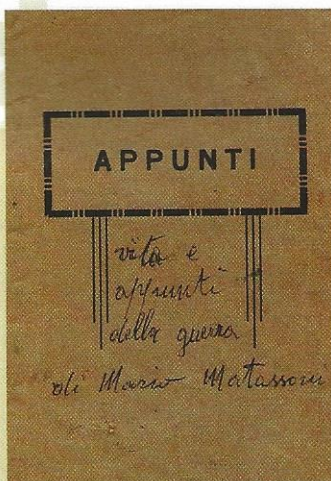 APPUNTI
vita e
appunti
della guerra
di Mario Matassoni